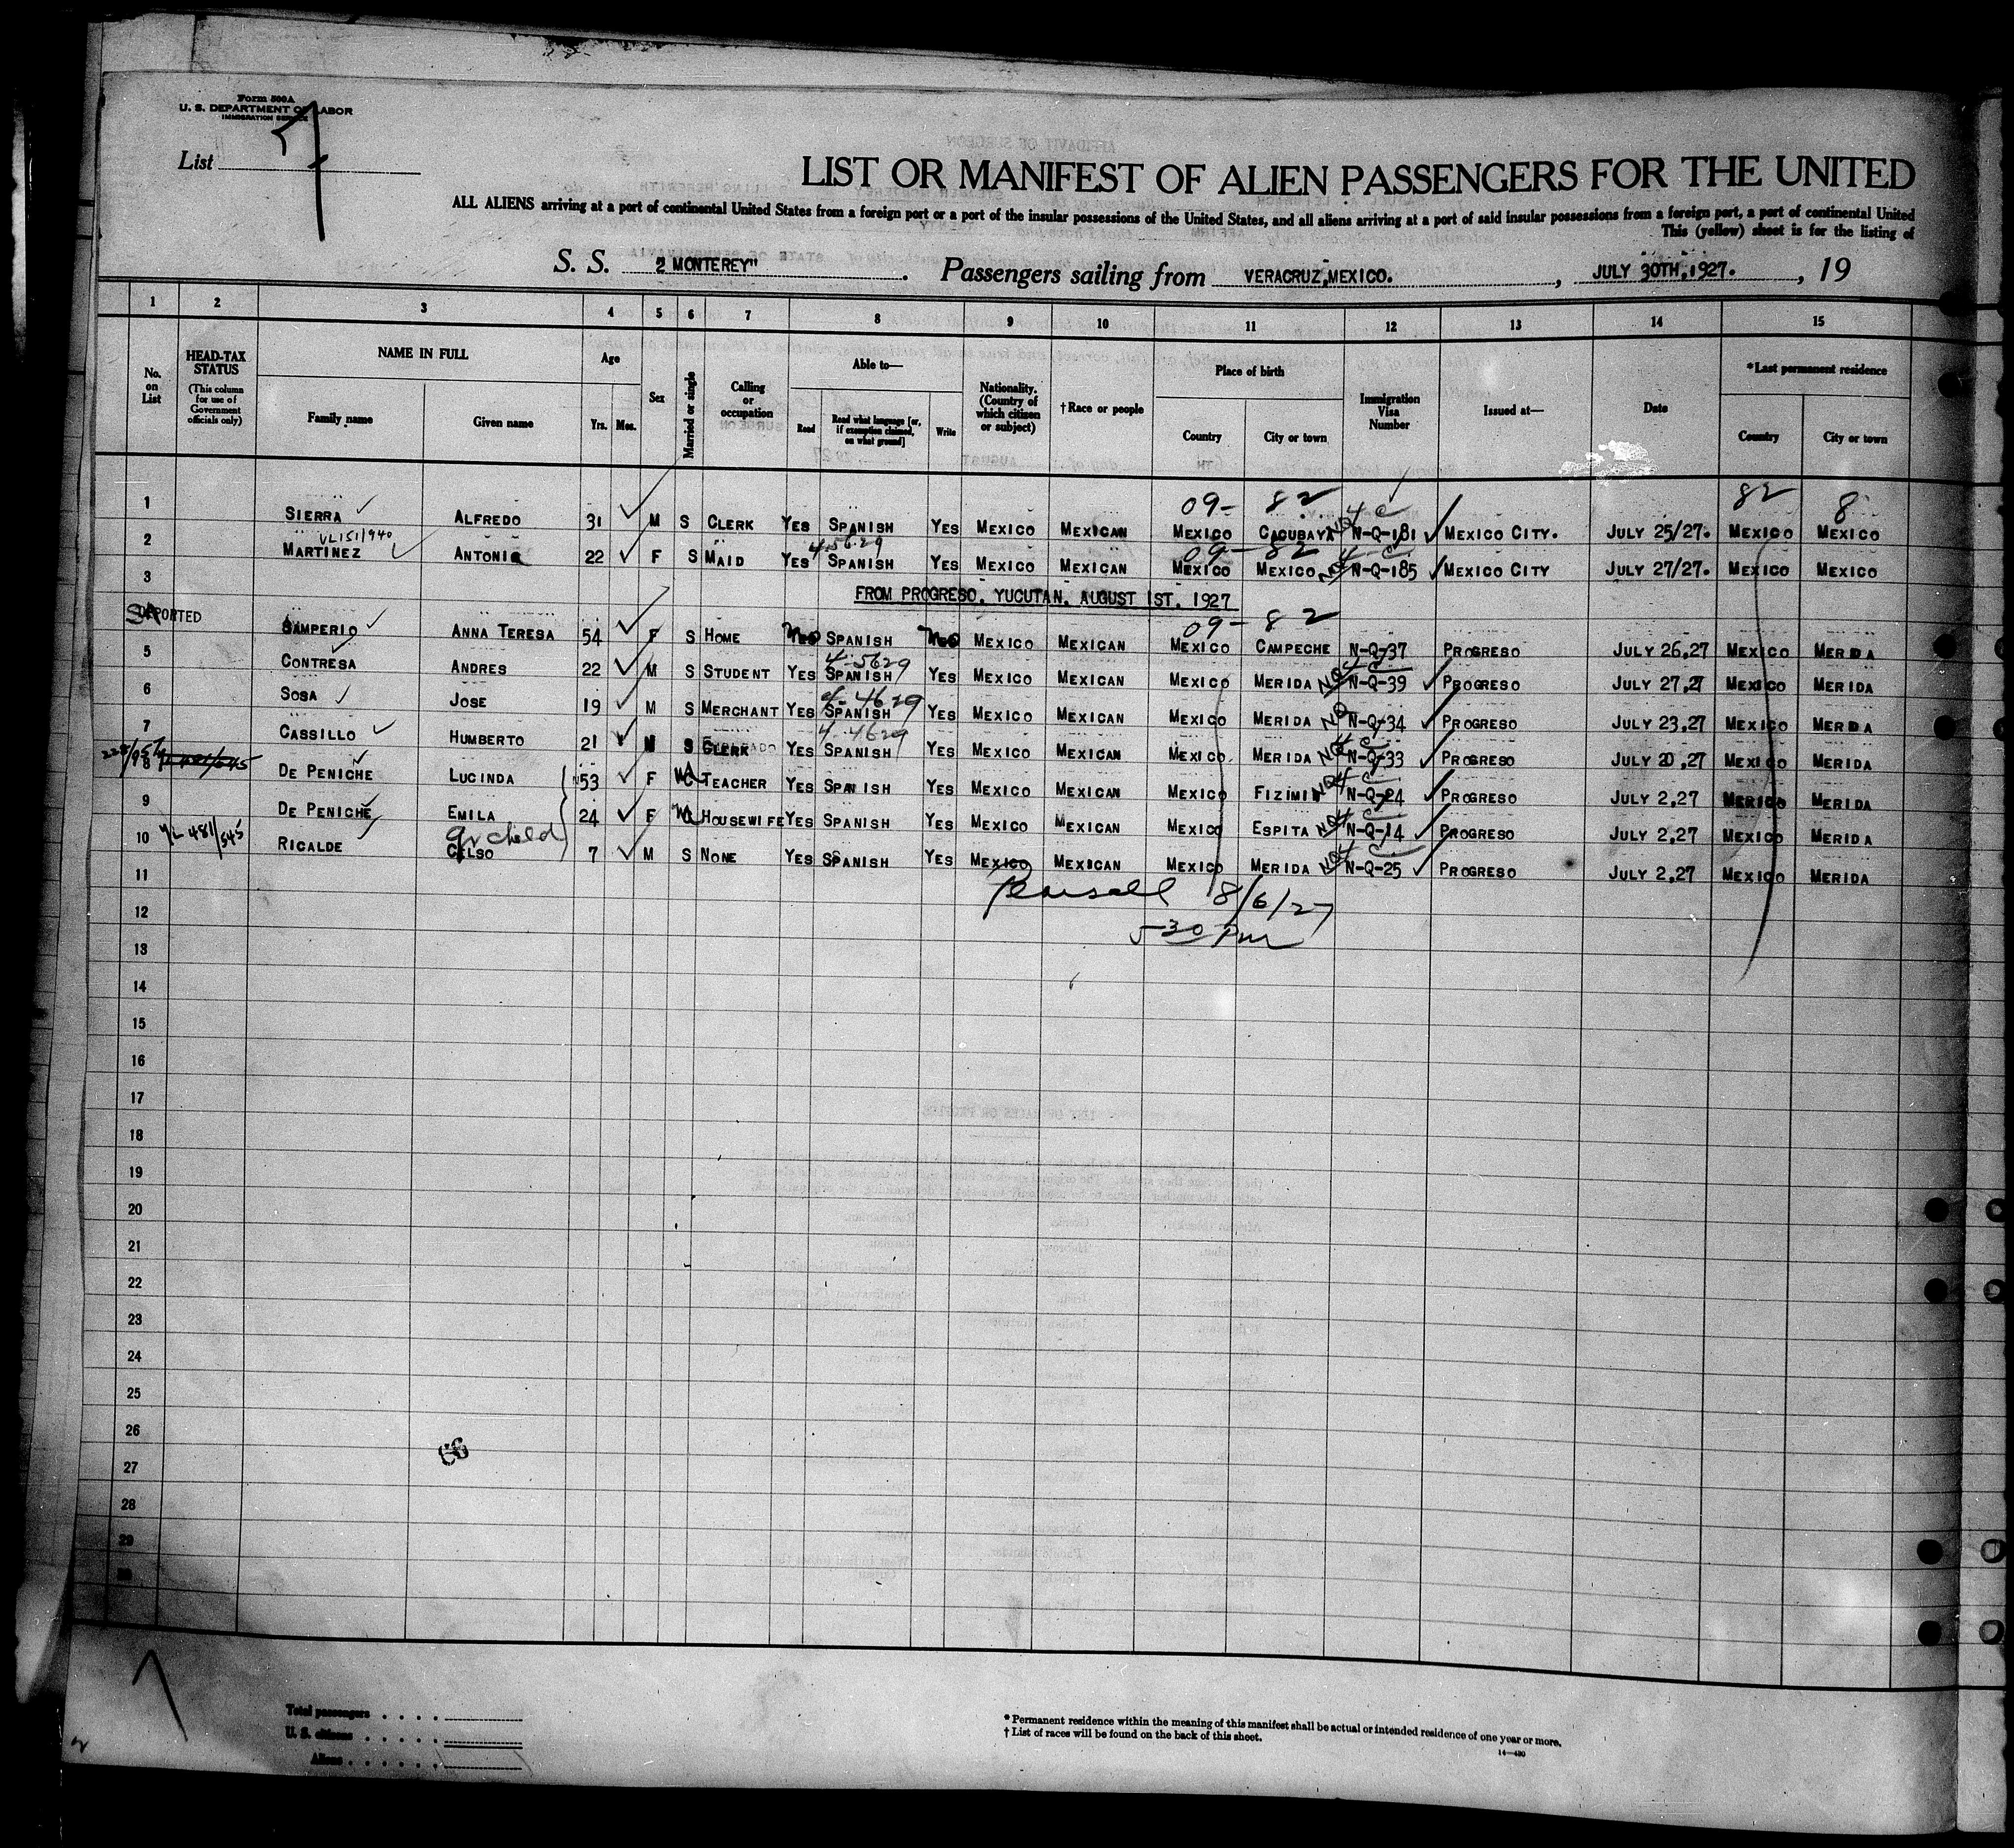 Form 500A
U. S. DEPARTMENT OF LABOR
IMMIGRATION SERVICE
List
LIST OR MANIFEST OF ALIEN PASSENGERS FOR THE UNITED
ALL ALIENS arriving at a port of continental United States from a foreign port or a port of the insular possessions of the United States, and all aliens arriving at a port of said insular possessions from a foreign port, a port of continental United
This (yellow) sheet is for the listing of
S. S. "MONTEREY" . Passengers sailing from VERACRUZ, MEXICO. , JULY 30TH, 1927. , 19
1 2 3 4 5 6 7 8 9 10 11 12 13 14 15
No. on List
HEAD-TAX STATUS
(This column for use of Government officials only)
NAME IN FULL
Family name Given name
Age
Yrs. Mos.
Sex
Married or single
Calling or occupation
Able to—
Read Read what language [or, if exemption claimed, on what ground] Write
Nationality. (Country of which citizen or subject)
† Race or people
Place of birth
Country City or town
Immigration Visa Number
Issued at—
Date
* Last permanent residence
Country City or town
09- 82 82 8
1 SIERRA ALFREDO 31 M S CLERK YES SPANISH YES MEXICO MEXICAN MEXICO CACUBAYA N-Q-181 MEXICO CITY. JULY 25/27. MEXICO MEXICO
VL151/940 4-5629 09- 82
2 MARTINEZ ANTONIA 22 F S MAID YES SPANISH YES MEXICO MEXICAN MEXICO MEXICO N-Q-185 MEXICO CITY JULY 27/27. MEXICO MEXICO
3 FROM PROGRESO, YUCUTAN, AUGUST 1ST, 1927
09- 82
DEPORTED SAMPERIO ANNA TERESA 54 F S HOME No SPANISH No MEXICO MEXICAN MEXICO CAMPECHE N-Q-37 PROGRESO JULY 26,27 MEXICO MERIDA
4-5629
5 CONTRESA ANDRES 22 M S STUDENT YES SPANISH YES MEXICO MEXICAN MEXICO MERIDA N-Q-39 PROGRESO JULY 27,27 MEXICO MERIDA
4-4629
6 SOSA JOSE 19 M S MERCHANT YES SPANISH YES MEXICO MEXICAN MEXICO MERIDA N-Q-34 PROGRESO JULY 23,27 MEXICO MERIDA
4-4629
7 CASSILLO HUMBERTO 21 M S CLERK YES SPANISH YES MEXICO MEXICAN MEXICO MERIDA N-Q-33 PROGRESO JULY 20,27 MEXICO MERIDA
8 DE PENICHE LUCINDA 53 F TEACHER YES SPANISH YES MEXICO MEXICAN MEXICO FIZIMIN N-Q-24 PROGRESO JULY 2,27 MEXICO MERIDA
9 DE PENICHE EMILA 24 F HOUSEWIFE YES SPANISH YES MEXICO MEXICAN MEXICO ESPITA N-Q-14 PROGRESO JULY 2,27 MEXICO MERIDA
gr child
10 RICALDE CELSO 7 M S NONE YES SPANISH YES MEXICO MEXICAN MEXICO MERIDA N-Q-25 PROGRESO JULY 2,27 MEXICO MERIDA
11 8/6/27
12 5-30 Pm
13
14
15
16
17
18
19
20
21
22
23
24
25
26
27
28
29
30
Total passengers
U. S. citizens
Aliens
* Permanent residence within the meaning of this manifest shall be actual or intended residence of one year or more.
† List of races will be found on the back of this sheet.
14—430